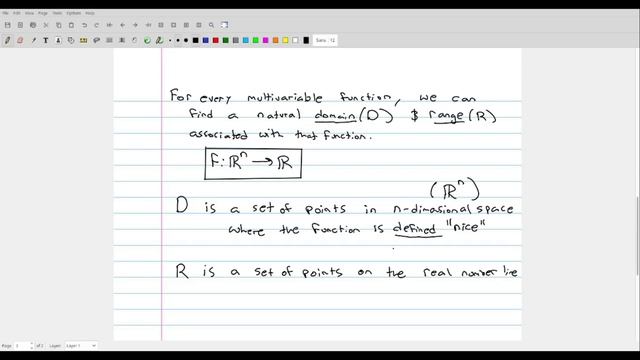 File Edit View Page Tools Text Help
Sans 12
For every multivariable function, we can
find a natural domain (D) & range (R)
associated with that function.
F: ℝⁿ → ℝ
(ℝⁿ)
D is a set of points in n-dimasional space
where the function is defined "nice"
R is a set of points on the real number line
Page 3 of 3 Layer: Layer 1